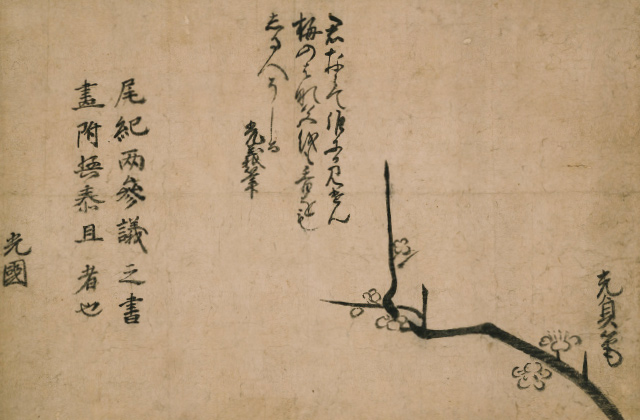 光貞筆
君ならて誰にか見せん
梅のはな色をも香をも
しる人そしる
光義筆
尾紀兩參議之書
畫附授泰且者也
光國